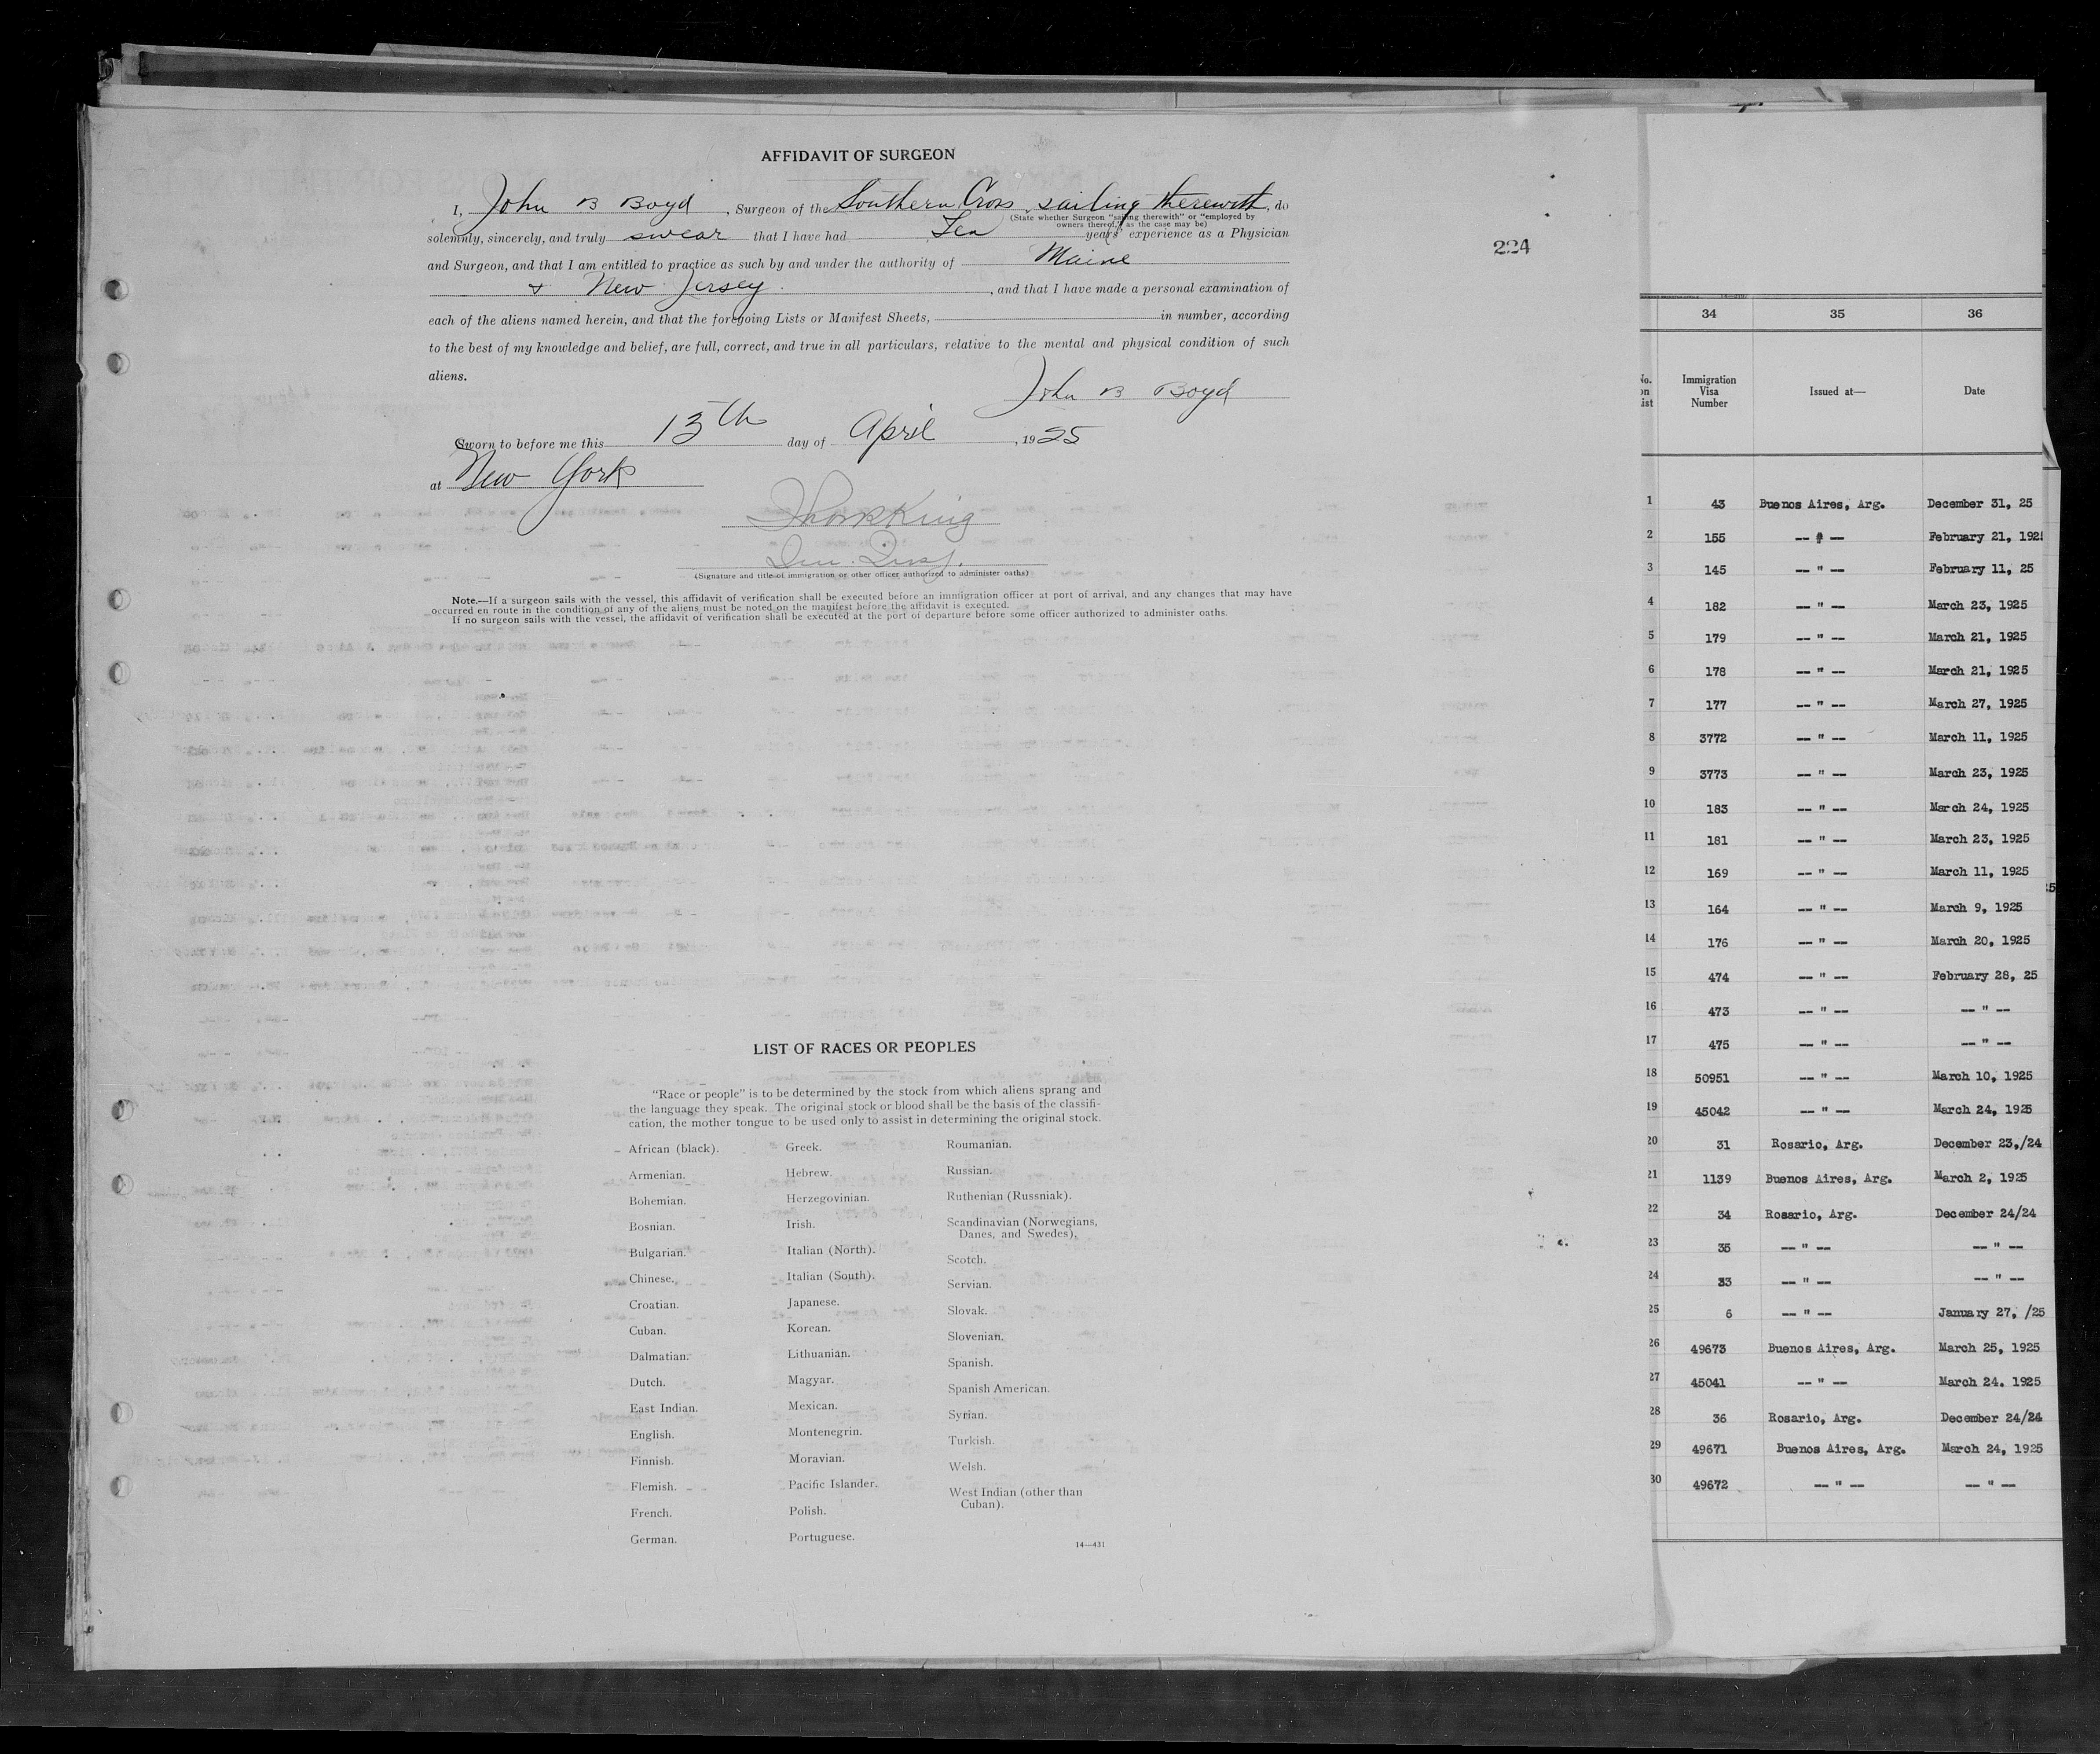 AFFIDAVIT OF SURGEON
I, John B Boyd, Surgeon of the Southern Cross, sailing therewith, do
(State whether Surgeon "sailing therewith" or "employed by
owners thereof," as the case may be)
solemnly, sincerely, and truly swear that I have had Ten years' experience as a Physician
224
and Surgeon, and that I am entitled to practice as such by and under the authority of Maine
& New Jersey, and that I have made a personal examination of
each of the aliens named herein, and that the foregoing Lists or Manifest Sheets, in number, according
to the best of my knowledge and belief, are full, correct, and true in all particulars, relative to the mental and physical condition of such
aliens.
John B Boyd
Sworn to before me this 13th day of April, 1925
at New York
King
(Signature and title of immigration or other officer authorized to administer oaths)
Note.—If a surgeon sails with the vessel, this affidavit of verification shall be executed before an immigration officer at port of arrival, and any changes that may have
occurred en route in the condition of any of the aliens must be noted on the manifest before the affidavit is executed.
If no surgeon sails with the vessel, the affidavit of verification shall be executed at the port of departure before some officer authorized to administer oaths.
LIST OF RACES OR PEOPLES
"Race or people" is to be determined by the stock from which aliens sprang and
the language they speak. The original stock or blood shall be the basis of the classifi-
cation, the mother tongue to be used only to assist in determining the original stock.
African (black).
Armenian.
Bohemian.
Bosnian.
Bulgarian.
Chinese.
Croatian.
Cuban.
Dalmatian.
Dutch.
East Indian.
English.
Finnish.
Flemish.
French.
German.
Greek.
Hebrew.
Herzegovinian.
Irish.
Italian (North).
Italian (South).
Japanese.
Korean.
Lithuanian.
Magyar.
Mexican.
Montenegrin.
Moravian.
Pacific Islander.
Polish.
Portuguese.
Roumanian.
Russian.
Ruthenian (Russniak).
Scandinavian (Norwegians,
Danes, and Swedes).
Scotch.
Servian.
Slovak.
Slovenian.
Spanish.
Spanish American.
Syrian.
Turkish.
Welsh.
West Indian (other than
Cuban).
14—431
34 35 36
No.
on
List
Immigration
Visa
Number
Issued at—
Date
1 43 Buenos Aires, Arg. December 31, 25
2 155 -- " -- February 21, 192
3 145 -- " -- February 11, 25
4 182 -- " -- March 23, 1925
5 179 -- " -- March 21, 1925
6 178 -- " -- March 21, 1925
7 177 -- " -- March 27, 1925
8 3772 -- " -- March 11, 1925
9 3773 -- " -- March 23, 1925
10 183 -- " -- March 24, 1925
11 181 -- " -- March 23, 1925
12 169 -- " -- March 11, 1925
13 164 -- " -- March 9, 1925
14 176 -- " -- March 20, 1925
15 474 -- " -- February 28, 25
16 473 -- " -- -- " --
17 475 -- " -- -- " --
18 50951 -- " -- March 10, 1925
19 45042 -- " -- March 24, 1925
20 31 Rosario, Arg. December 23,/24
21 1139 Buenos Aires, Arg. March 2, 1925
22 34 Rosario, Arg. December 24/24
23 35 -- " -- -- " --
24 33 -- " -- -- " --
25 6 -- " -- January 27, /25
26 49673 Buenos Aires, Arg. March 25, 1925
27 45041 -- " -- March 24. 1925
28 36 Rosario, Arg. December 24/24
29 49671 Buenos Aires, Arg. March 24, 1925
30 49672 -- " -- -- " --